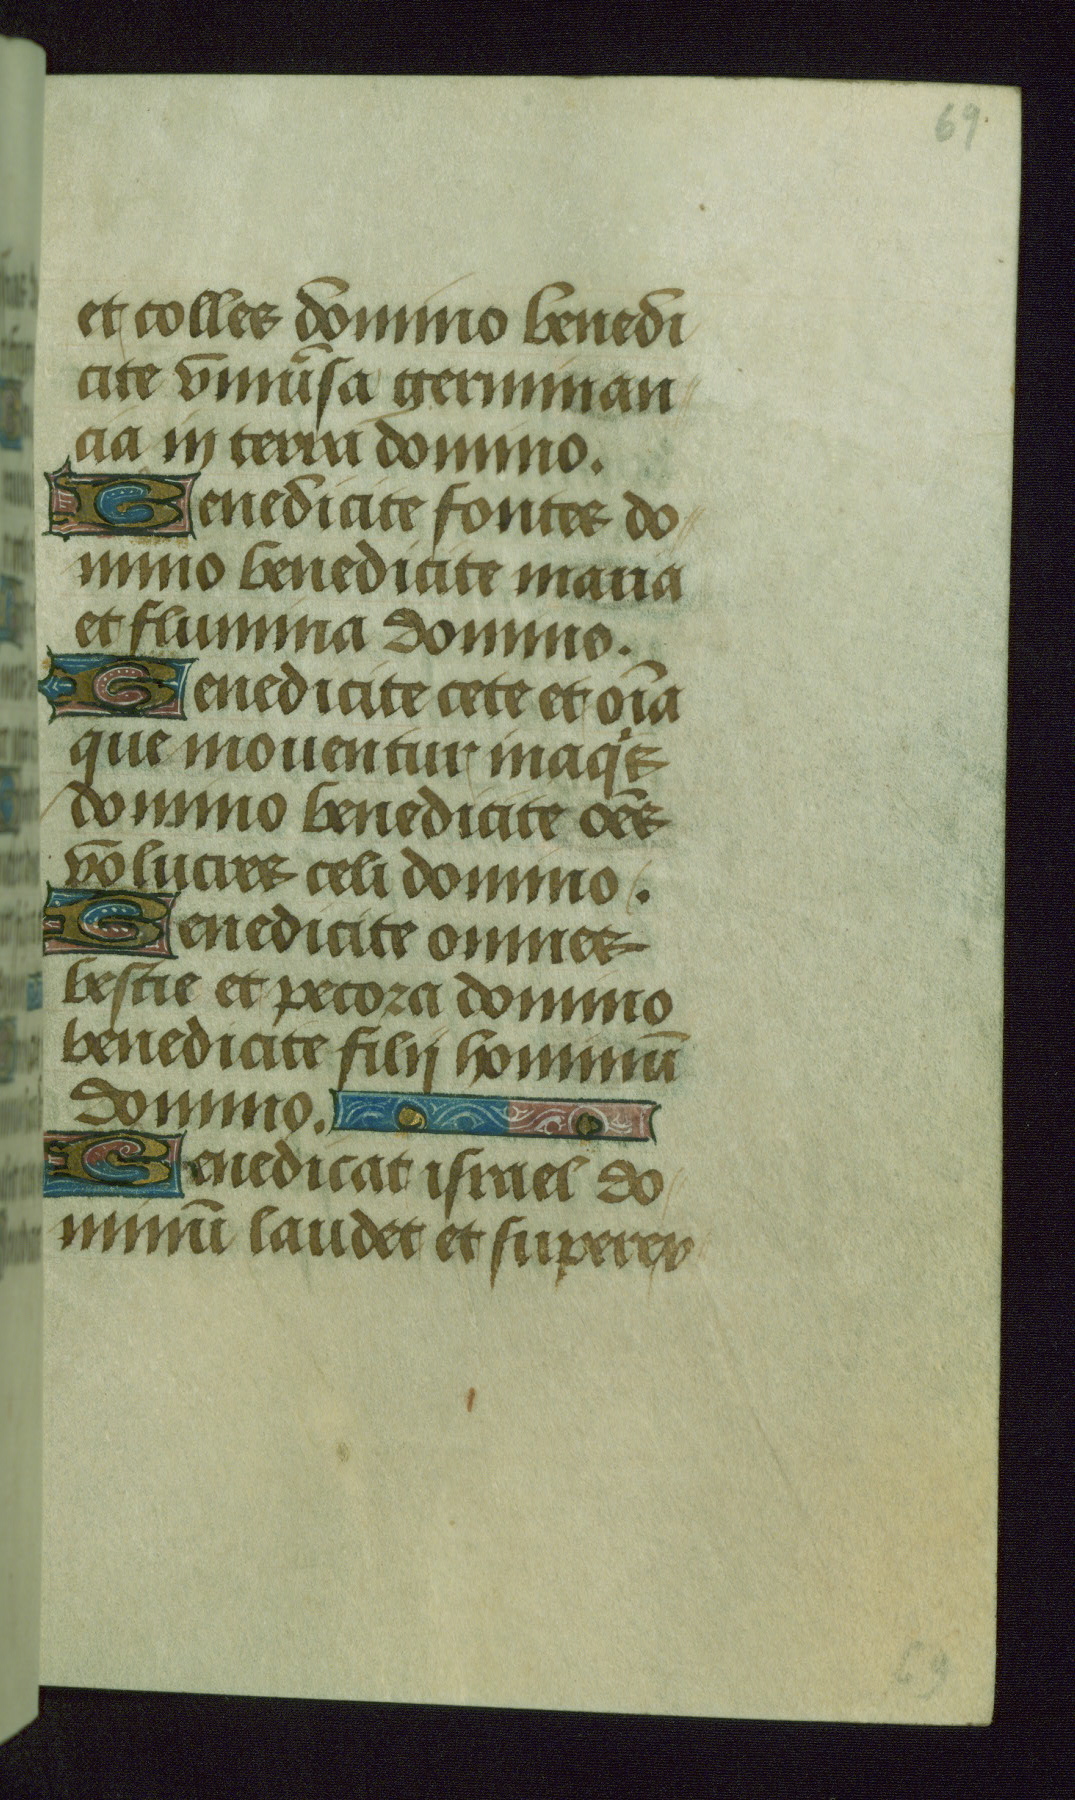 69
et colles domino benedi
cite vniũsa germinan
cia in terra domino.
Benedicite fontes do
mino benedicite maria
et flumina domino.
Benedicite cete et oĩa
que mouentur in aq̃s
domino benedicite oẽs
volucres celi domino.
Benedicite omnes
bestie et pecora domino
benedicite filij hominũ
domino.
Benedicat israel do
minũ laudet et superex
69